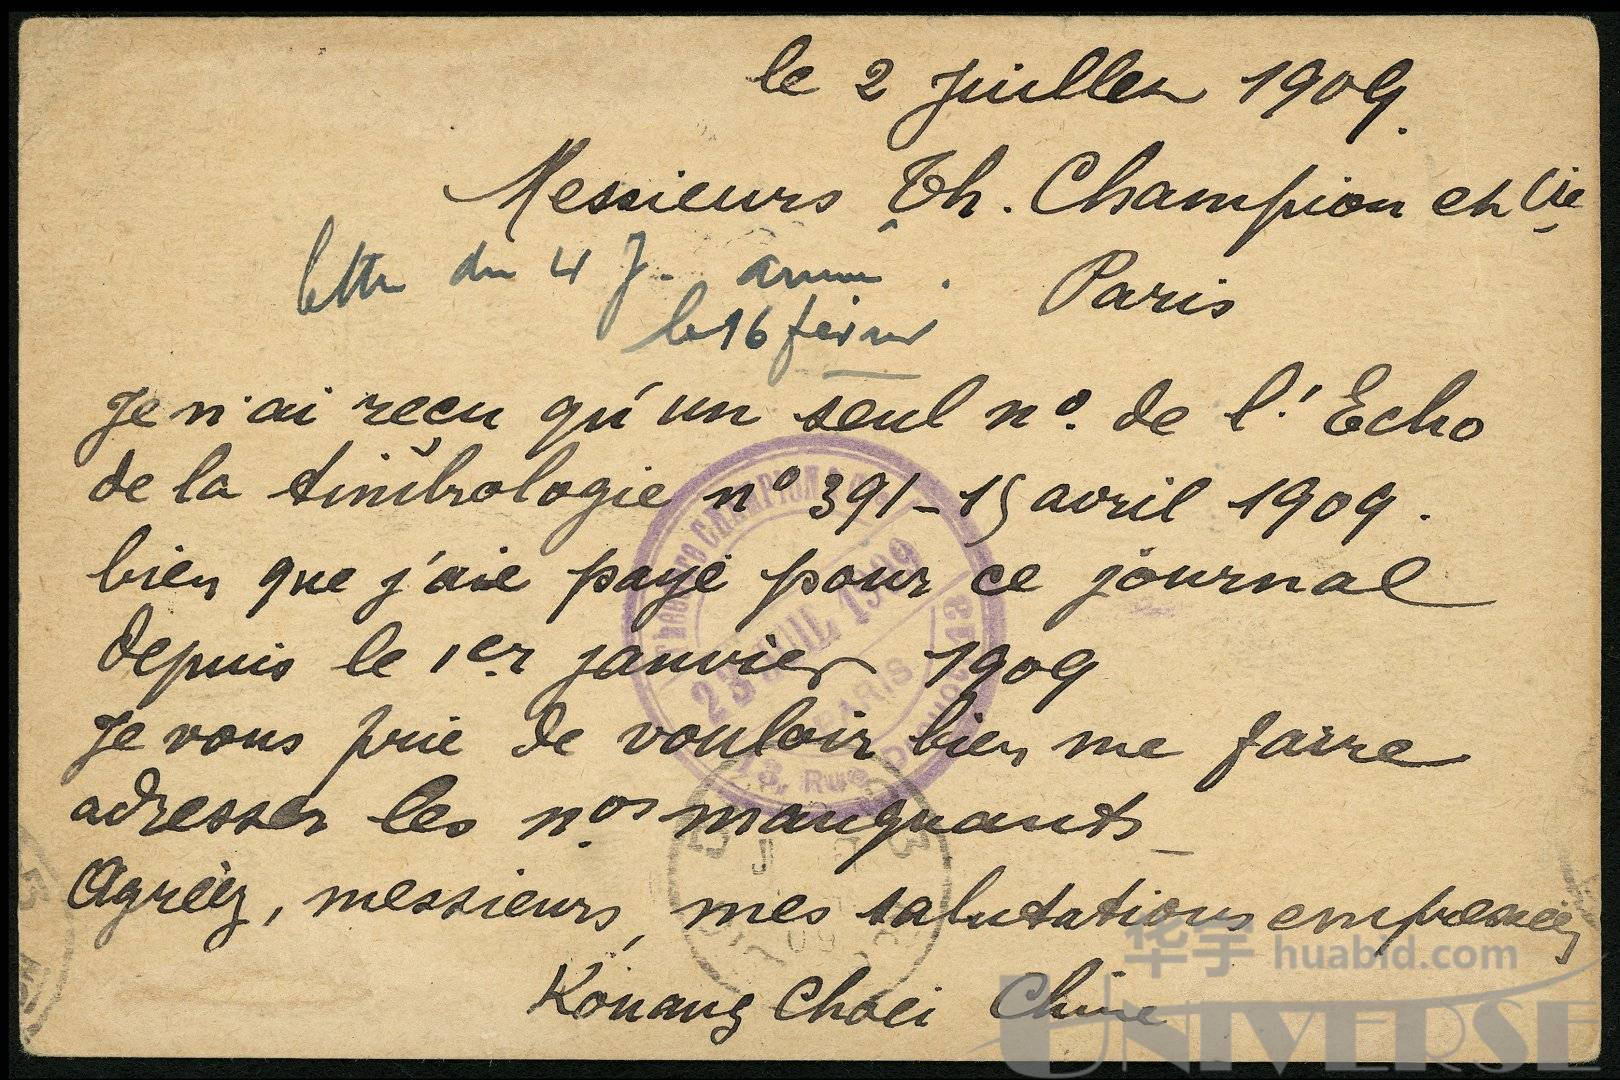 le 2 Juillet 1909.
Messieurs Th. Champion et Cie
Paris
lettre du 4 J.
le 16 février
Je n'ai reçu qu'un seul no. de l'Echo
de la timbrologie no 391 - 15 avril 1909.
bien que j'aie payé pour ce journal
depuis le 1er janvier 1909
Je vous prie de vouloir bien me faire
adresser les nos manquants
Agréez, messieurs, mes salutations empressées
Kouang Choei Chine
CHAMPION
23 JUIL 1909
PARIS
13, Rue Drouot
华宇 huabid.com
UNIVERSE